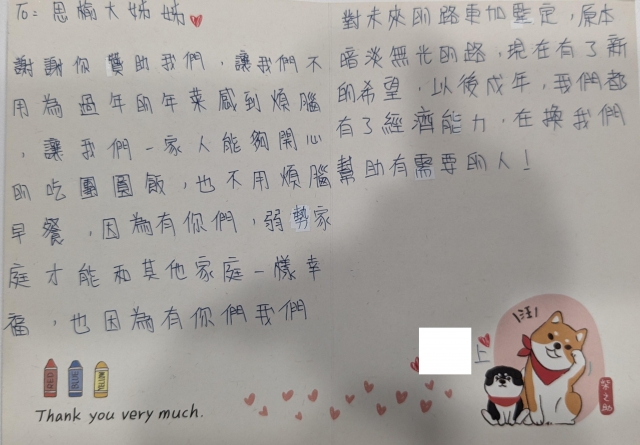 To：思榆大姊姊
謝謝你贊助我們，讓我們不
用為過年的年菜感到煩腦
，讓我們一家人能夠開心
的吃團圓飯，也不用煩腦
早餐，因為有你們，弱勢家
庭才能和其他家庭一樣幸
福，也因為有你們我們
對未來的路更加堅定，原本
暗淡無光的路，現在有了新
的希望，以後成年，我們都
有了經濟能力，在換我們
幫助有需要的人！
上
汪!
柴之助
RED
BLUE
YELLOW
Thank you very much.